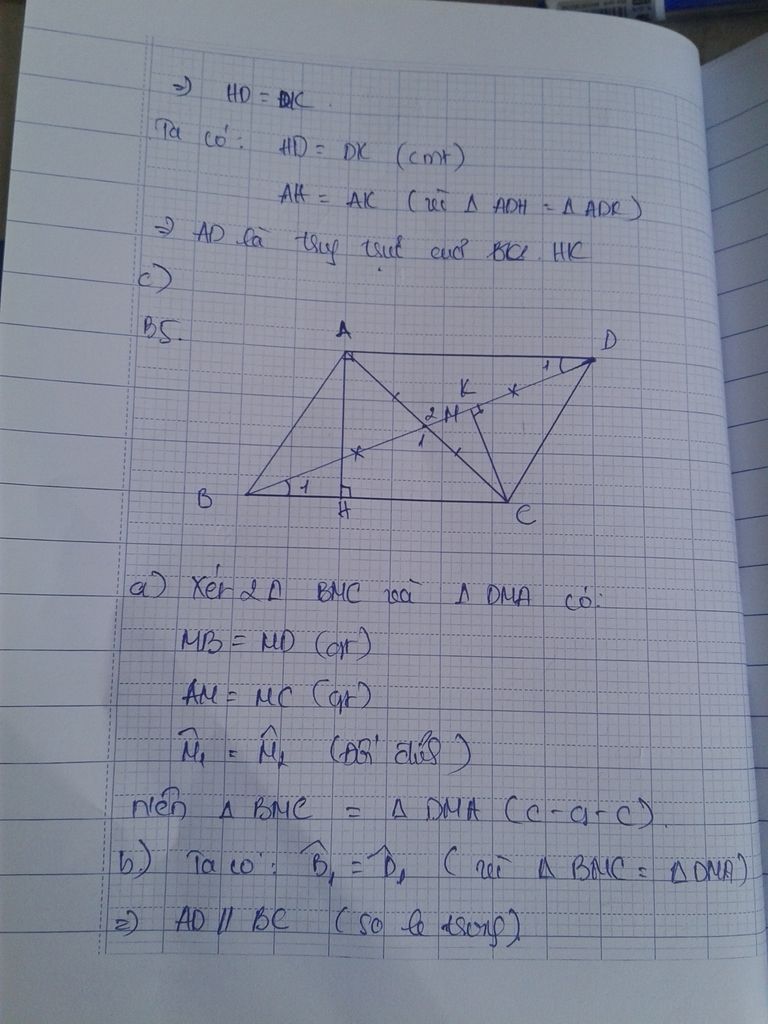 => HD = DK.
Ta có: HD = DK (cmt)
AH = AK (vì Δ ADH = Δ ADK)
=> AD là trung trực của HK
c)
B5.
A
D
1
K
2 M
1
B
1
H
C
a) Xét 2Δ BMC và Δ DMA có:
MB = MD (gt)
AM = MC (gt)
M̂₁ = M̂₂ (đối đỉnh)
nên Δ BMC = Δ DMA (c-g-c).
b) Ta có: B̂₁ = D̂₁ (vì Δ BMC = Δ DMA)
=> AD // BC (so le trong)